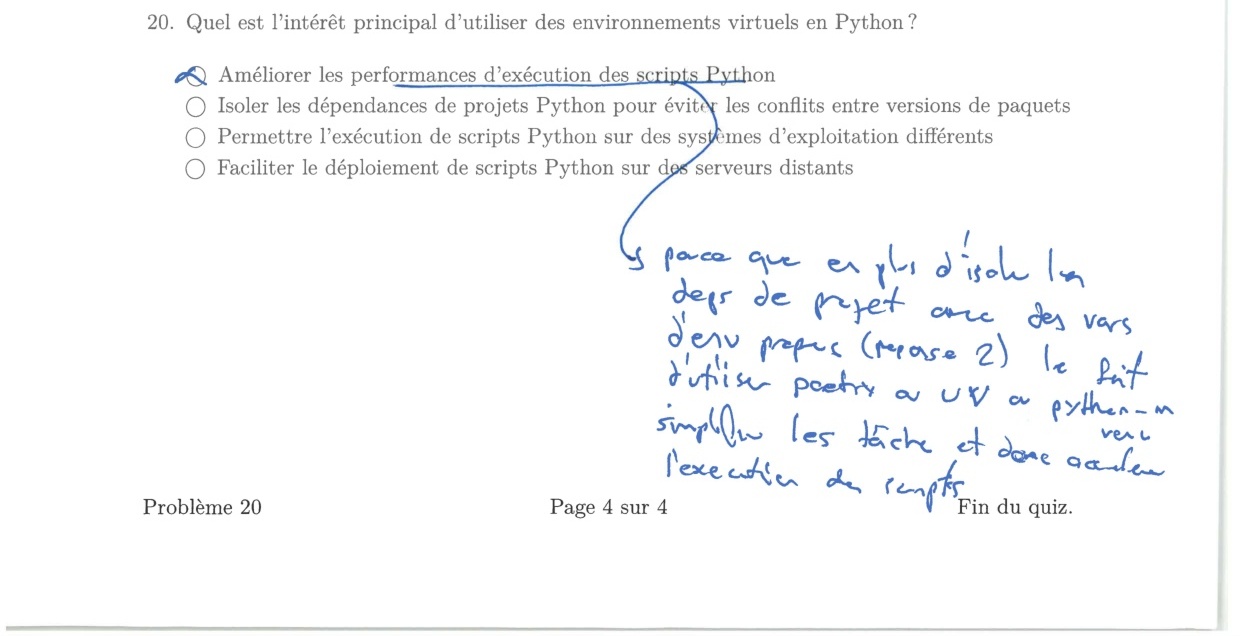 20. Quel est l'intérêt principal d'utiliser des environnements virtuels en Python ?
Améliorer les performances d'exécution des scripts Python
Isoler les dépendances de projets Python pour éviter les conflits entre versions de paquets
Permettre l'exécution de scripts Python sur des systèmes d'exploitation différents
Faciliter le déploiement de scripts Python sur des serveurs distants
parce que en plus d'isole les
deps de projet avec des vars
d'env propres (reponse 2) le fait
d'utiliser poetry ou UV ou python -m
venv
les tâche et donc
l'execution des scripts
Problème 20
Page 4 sur 4
Fin du quiz.